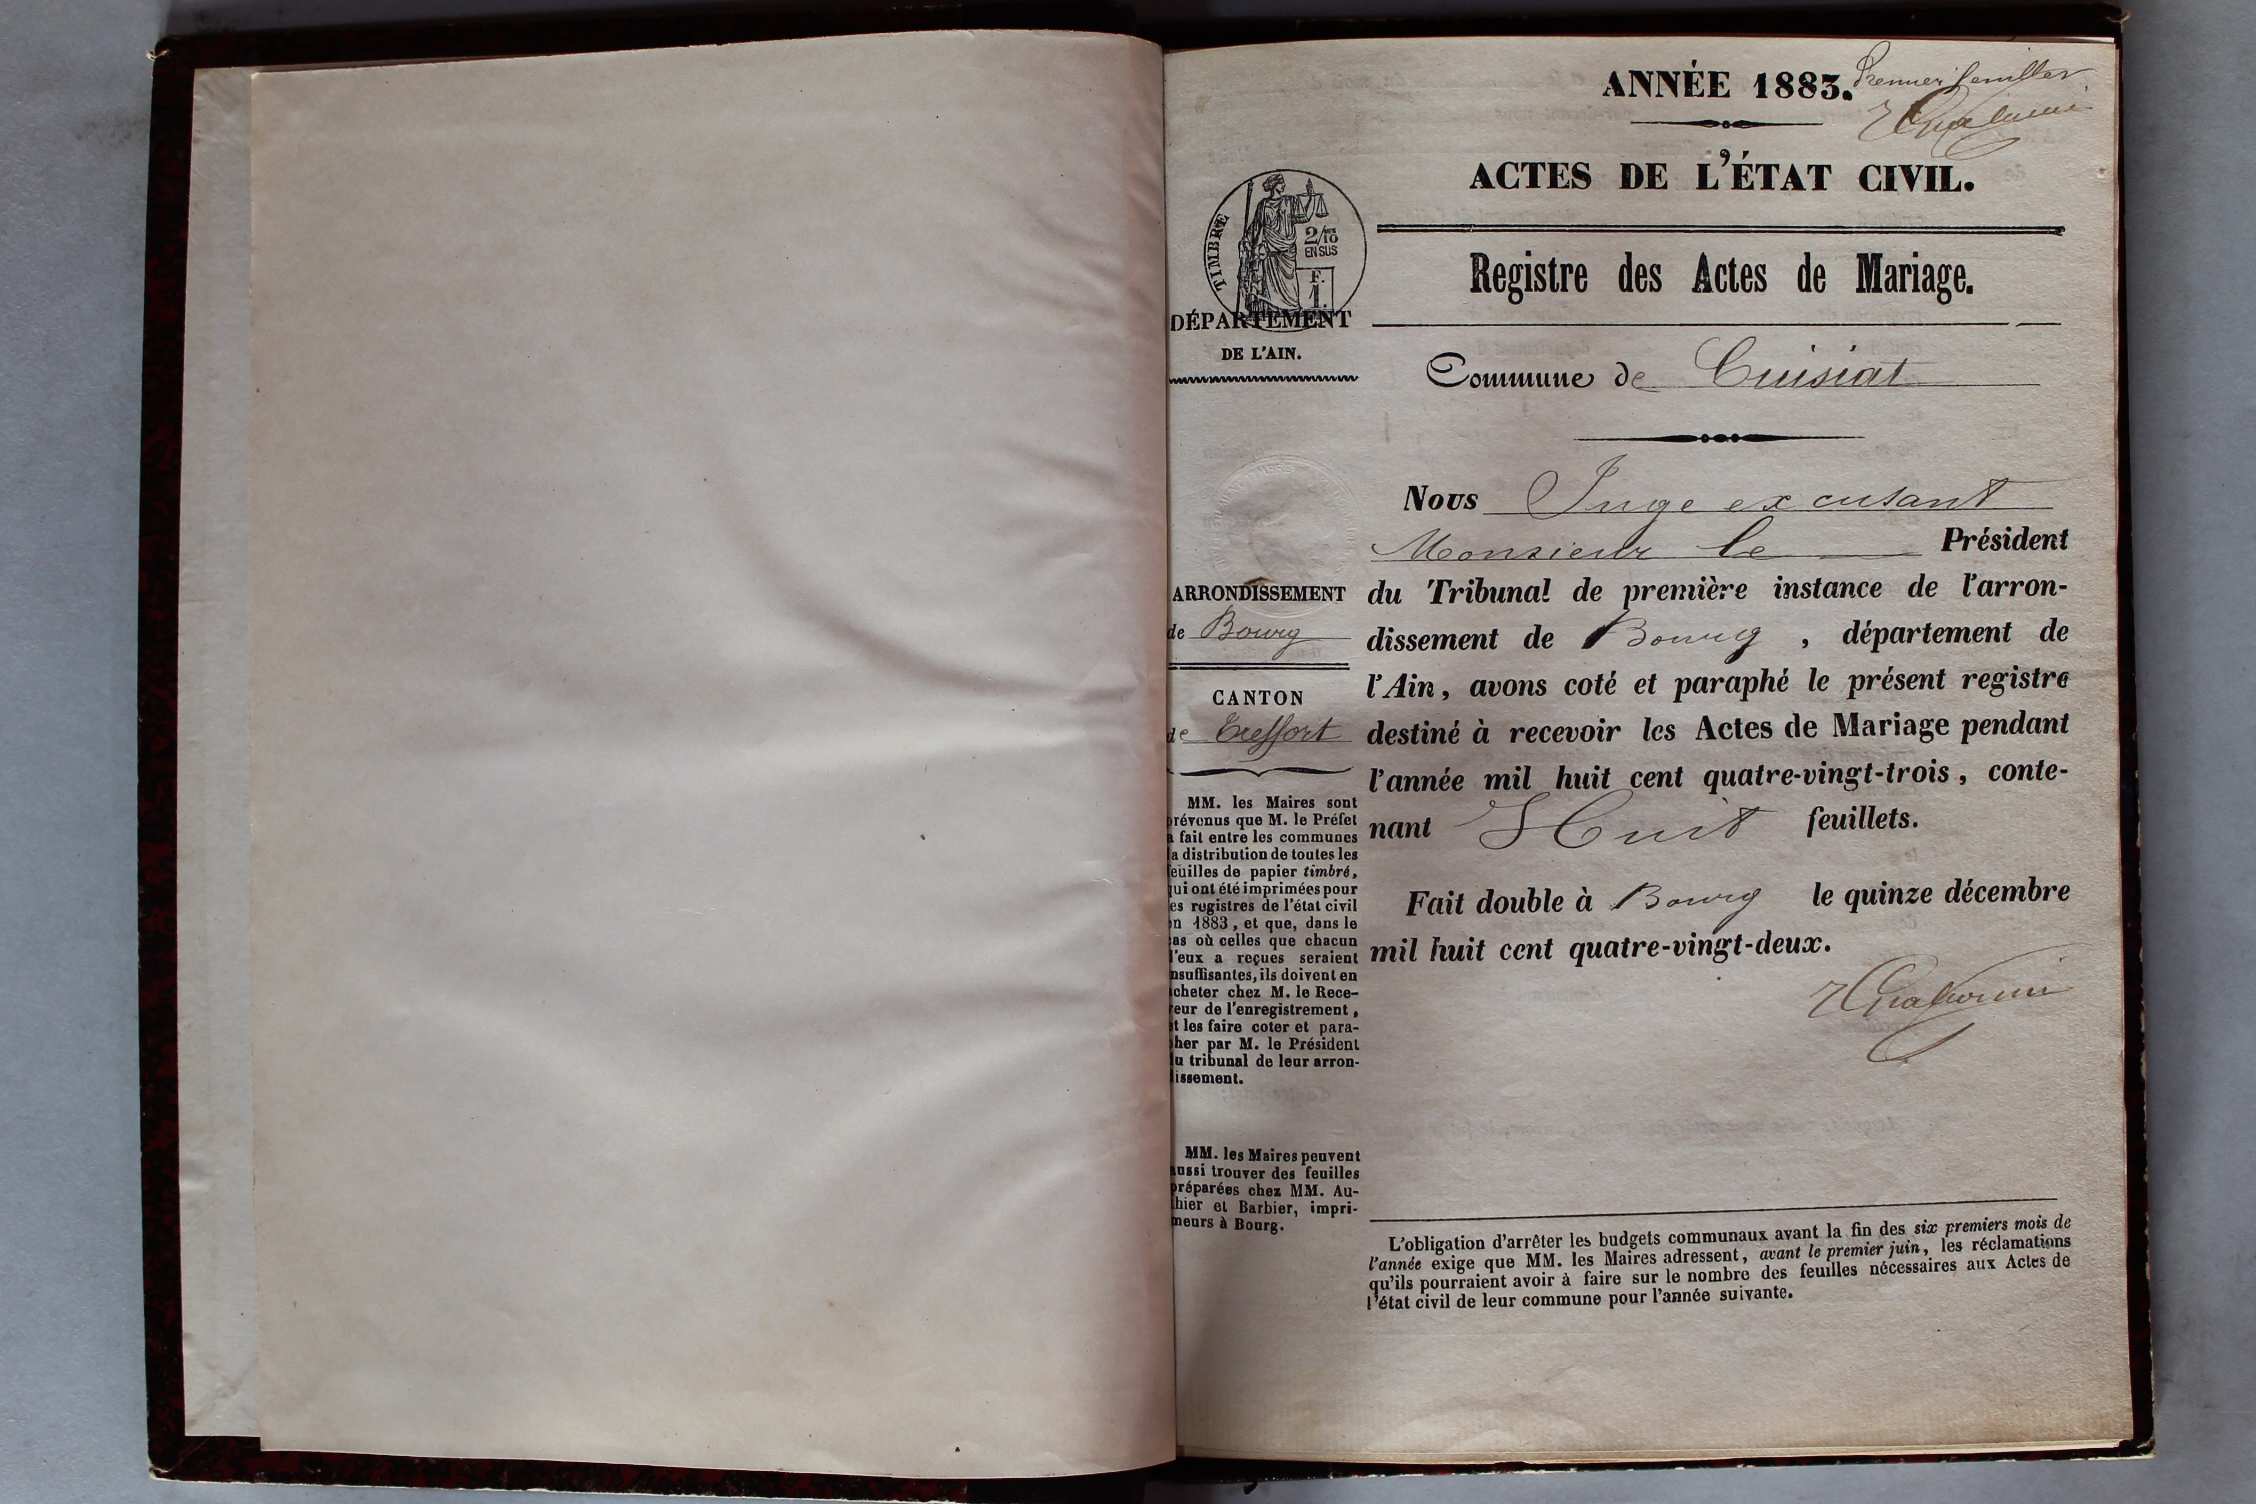 ANNÉE 1883.
Premier feuillet
ACTES DE L'ÉTAT CIVIL.
Registre des Actes de Mariage.
TIMBRE
2/10
EN SUS
F.
1.
DÉPARTEMENT
DE L'AIN.
Commune de Cuisiat
ARRONDISSEMENT
de Bourg
CANTON
de Treffort
MM. les Maires sont
prévenus que M. le Préfet
a fait entre les communes
la distribution de toutes les
feuilles de papier timbré,
qui ont été imprimées pour
les registres de l'état civil
en 1883, et que, dans le
cas où celles que chacun
d'eux a reçues seraient
insuffisantes, ils doivent en
acheter chez M. le Rece-
veur de l'enregistrement,
et les faire coter et para-
pher par M. le Président
du tribunal de leur arron-
dissement.
MM. les Maires peuvent
aussi trouver des feuilles
préparées chez MM. Au-
thier et Barbier, impri-
meurs à Bourg.
Nous Juge excusant
Monsieur le Président
du Tribunal de première instance de l'arron-
dissement de Bourg, département de
l'Ain, avons coté et paraphé le présent registre
destiné à recevoir les Actes de Mariage pendant
l'année mil huit cent quatre-vingt-trois, conte-
nant Huit feuillets.
Fait double à Bourg le quinze décembre
mil huit cent quatre-vingt-deux.
L'obligation d'arrêter les budgets communaux avant la fin des six premiers mois de
l'année exige que MM. les Maires adressent, avant le premier juin, les réclamations
qu'ils pourraient avoir à faire sur le nombre des feuilles nécessaires aux Actes de
l'état civil de leur commune pour l'année suivante.